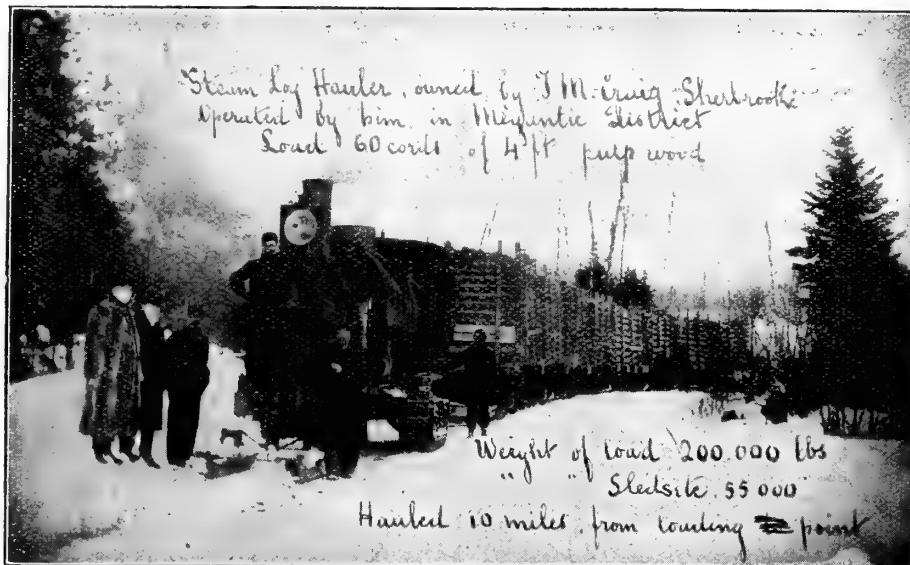 Steam Log Hauler, owned by J M. Craig Sherbrooke
Operated by him in Megantic District
Load 60 cords of 4 ft pulp wood
Weight of load 200.000 lbs
" " Sleds etc. 55 000
Hauled 10 miles from loading point